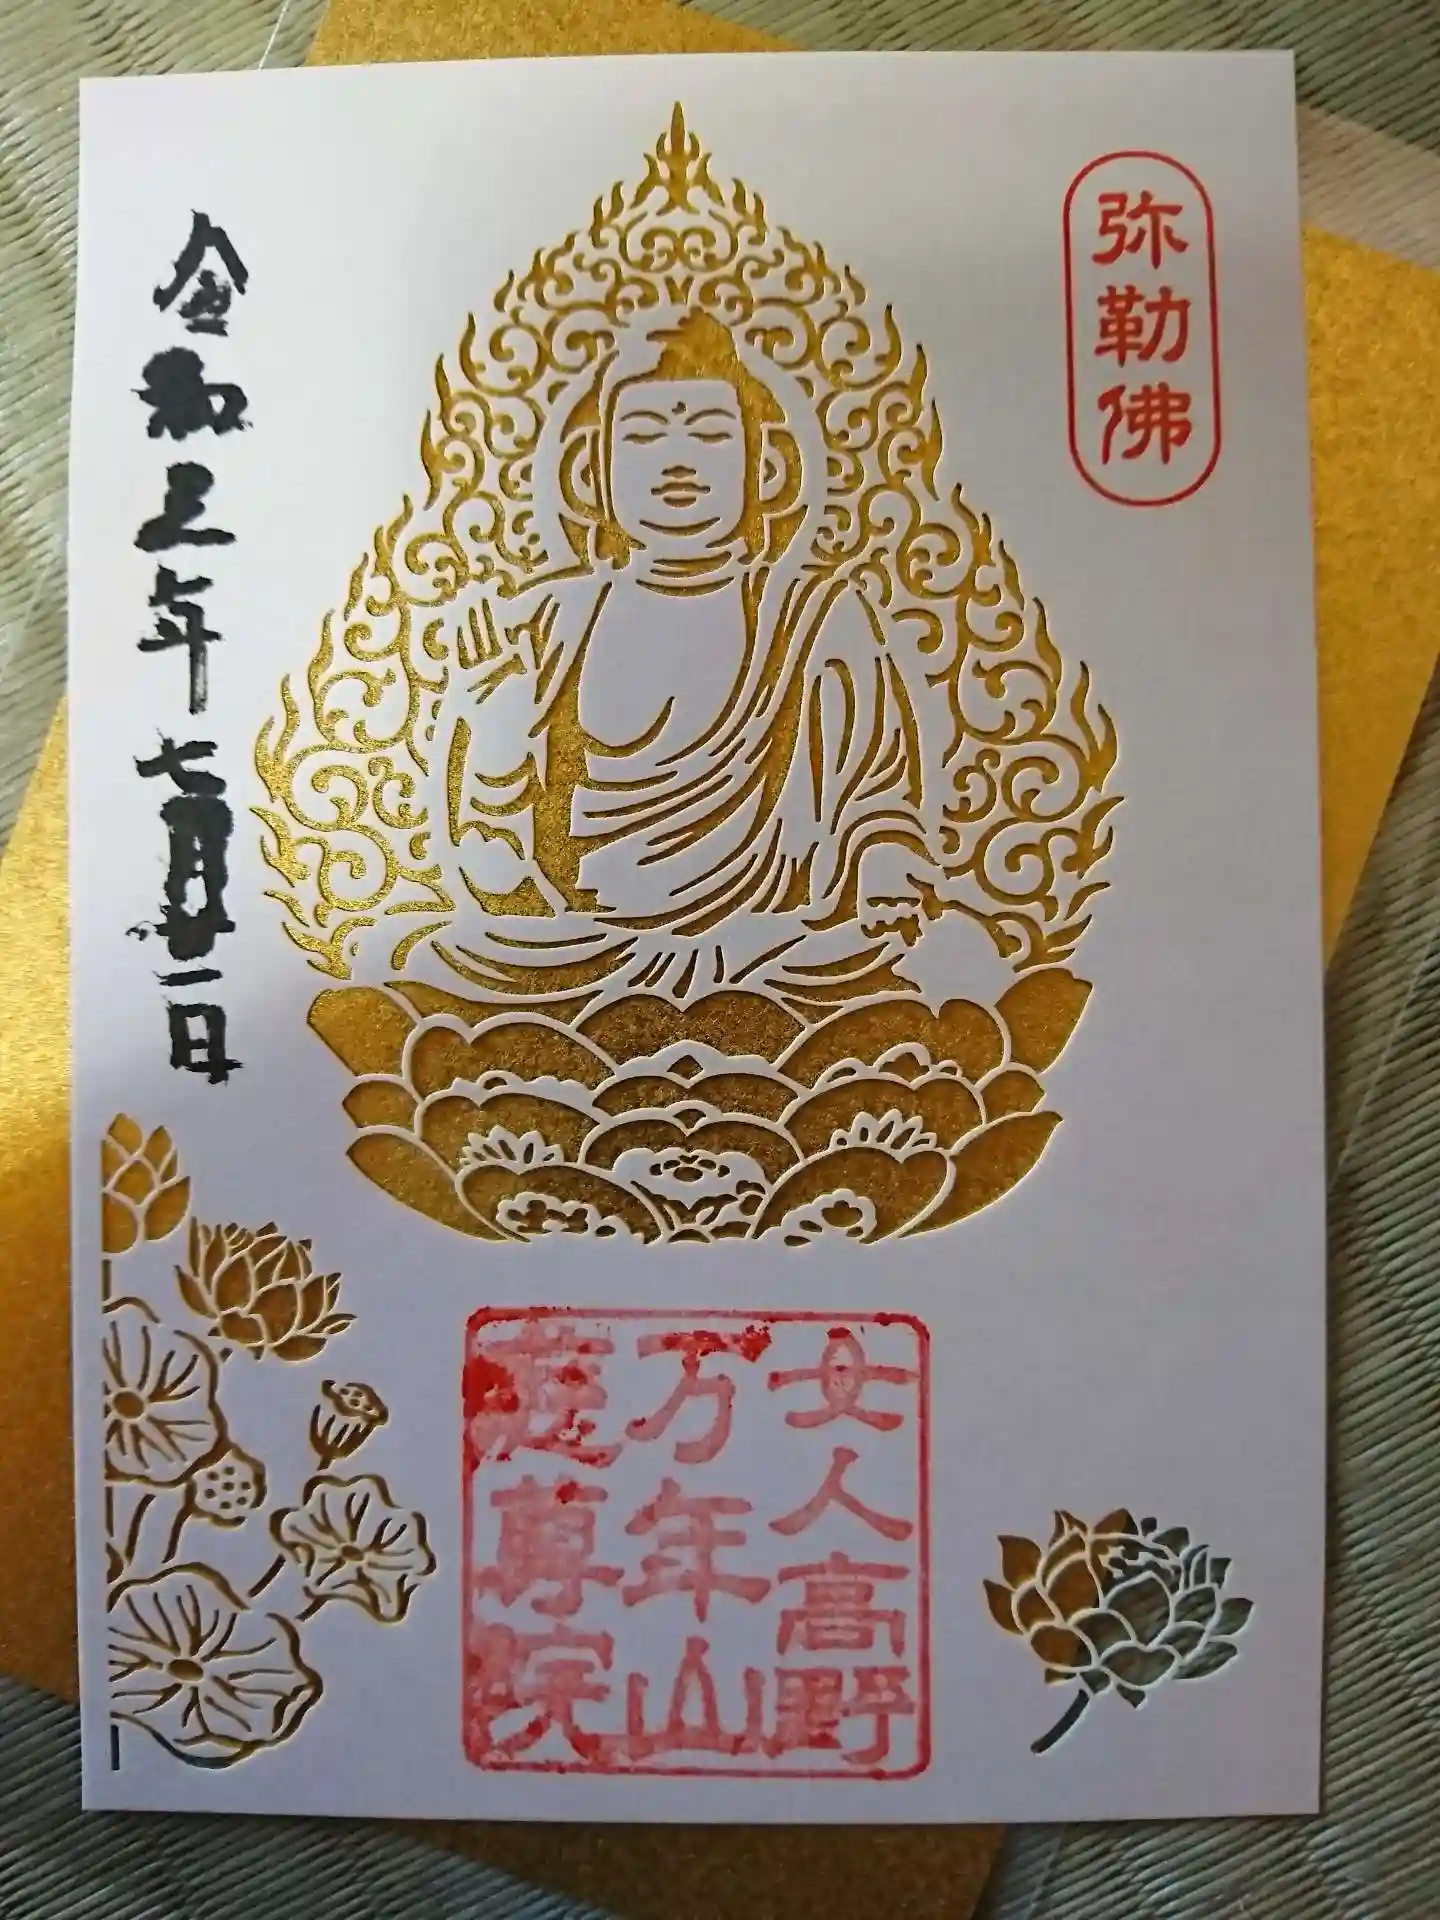 弥勒佛
令和三年七月廿一日
女人高野
万年山
慈尊院